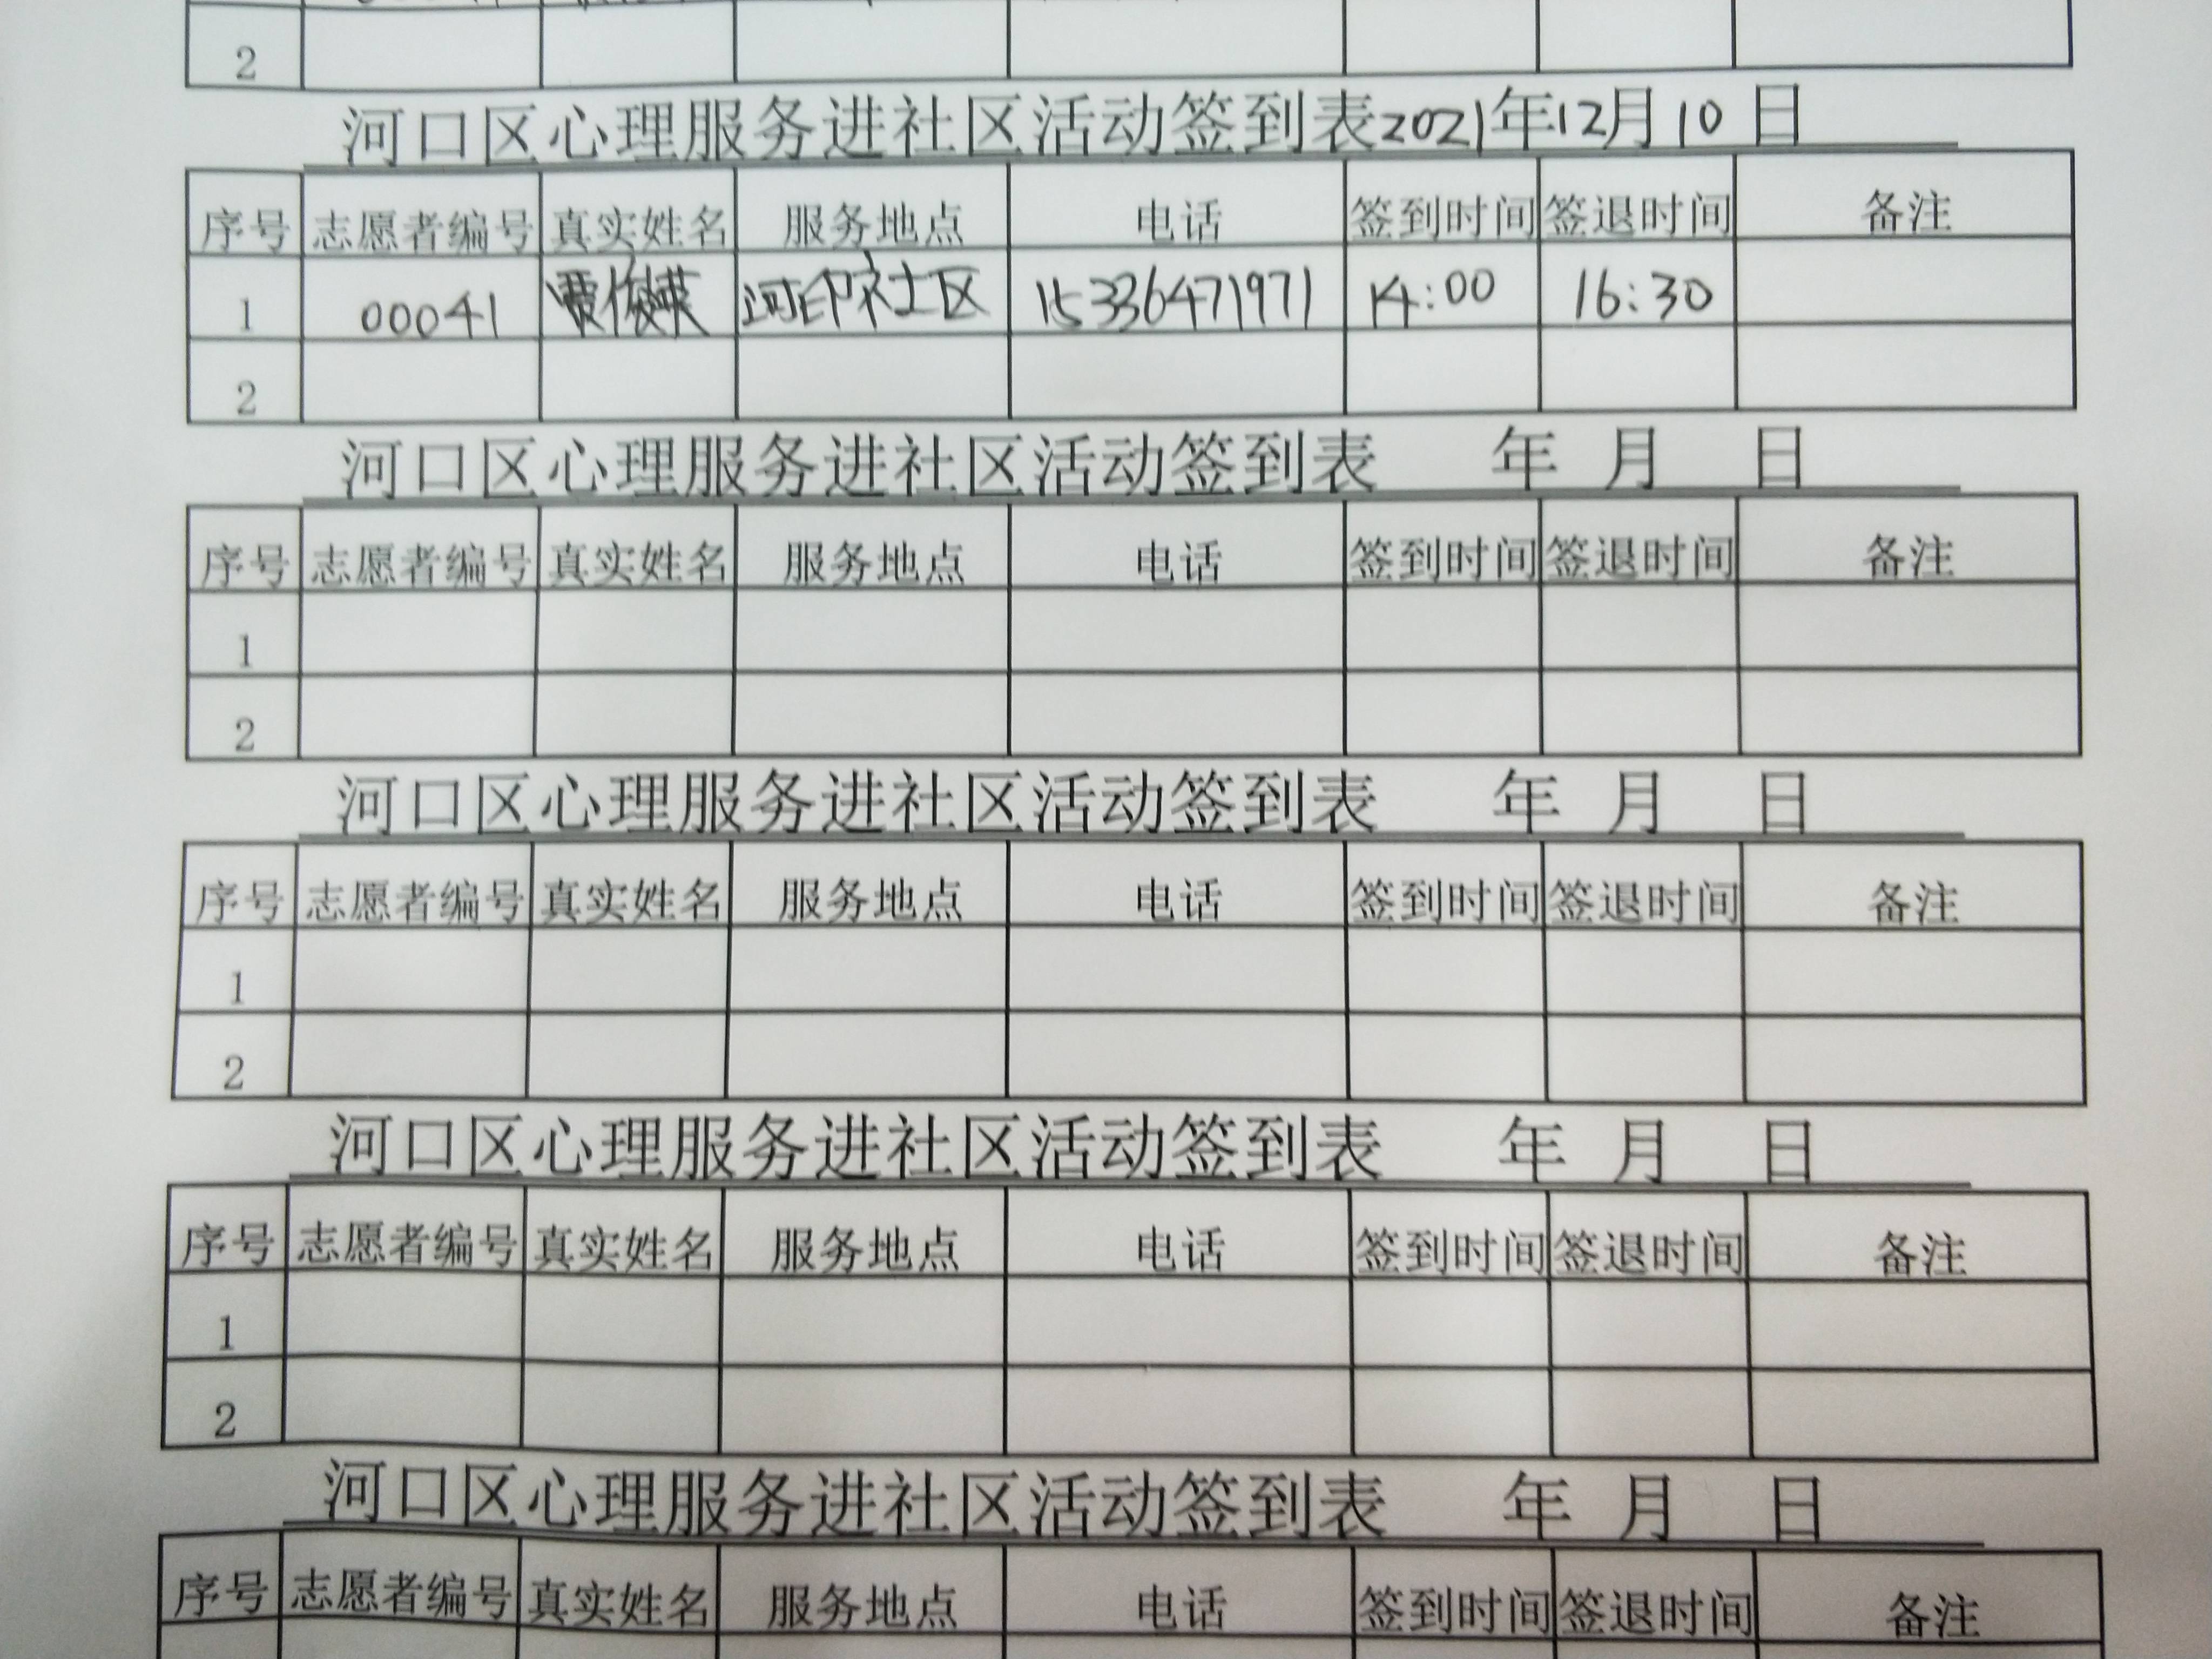 2
河口区心理服务进社区活动签到表2021年12月10日
序号 志愿者编号 真实姓名 服务地点 电话 签到时间 签退时间 备注
1 00041 社区 15336471971 14:00 16:30
2
河口区心理服务进社区活动签到表 年 月 日
序号 志愿者编号 真实姓名 服务地点 电话 签到时间 签退时间 备注
1
2
河口区心理服务进社区活动签到表 年 月 日
序号 志愿者编号 真实姓名 服务地点 电话 签到时间 签退时间 备注
1
2
河口区心理服务进社区活动签到表 年 月 日
序号 志愿者编号 真实姓名 服务地点 电话 签到时间 签退时间 备注
1
2
河口区心理服务进社区活动签到表 年 月 日
序号 志愿者编号 真实姓名 服务地点 电话 签到时间 签退时间 备注